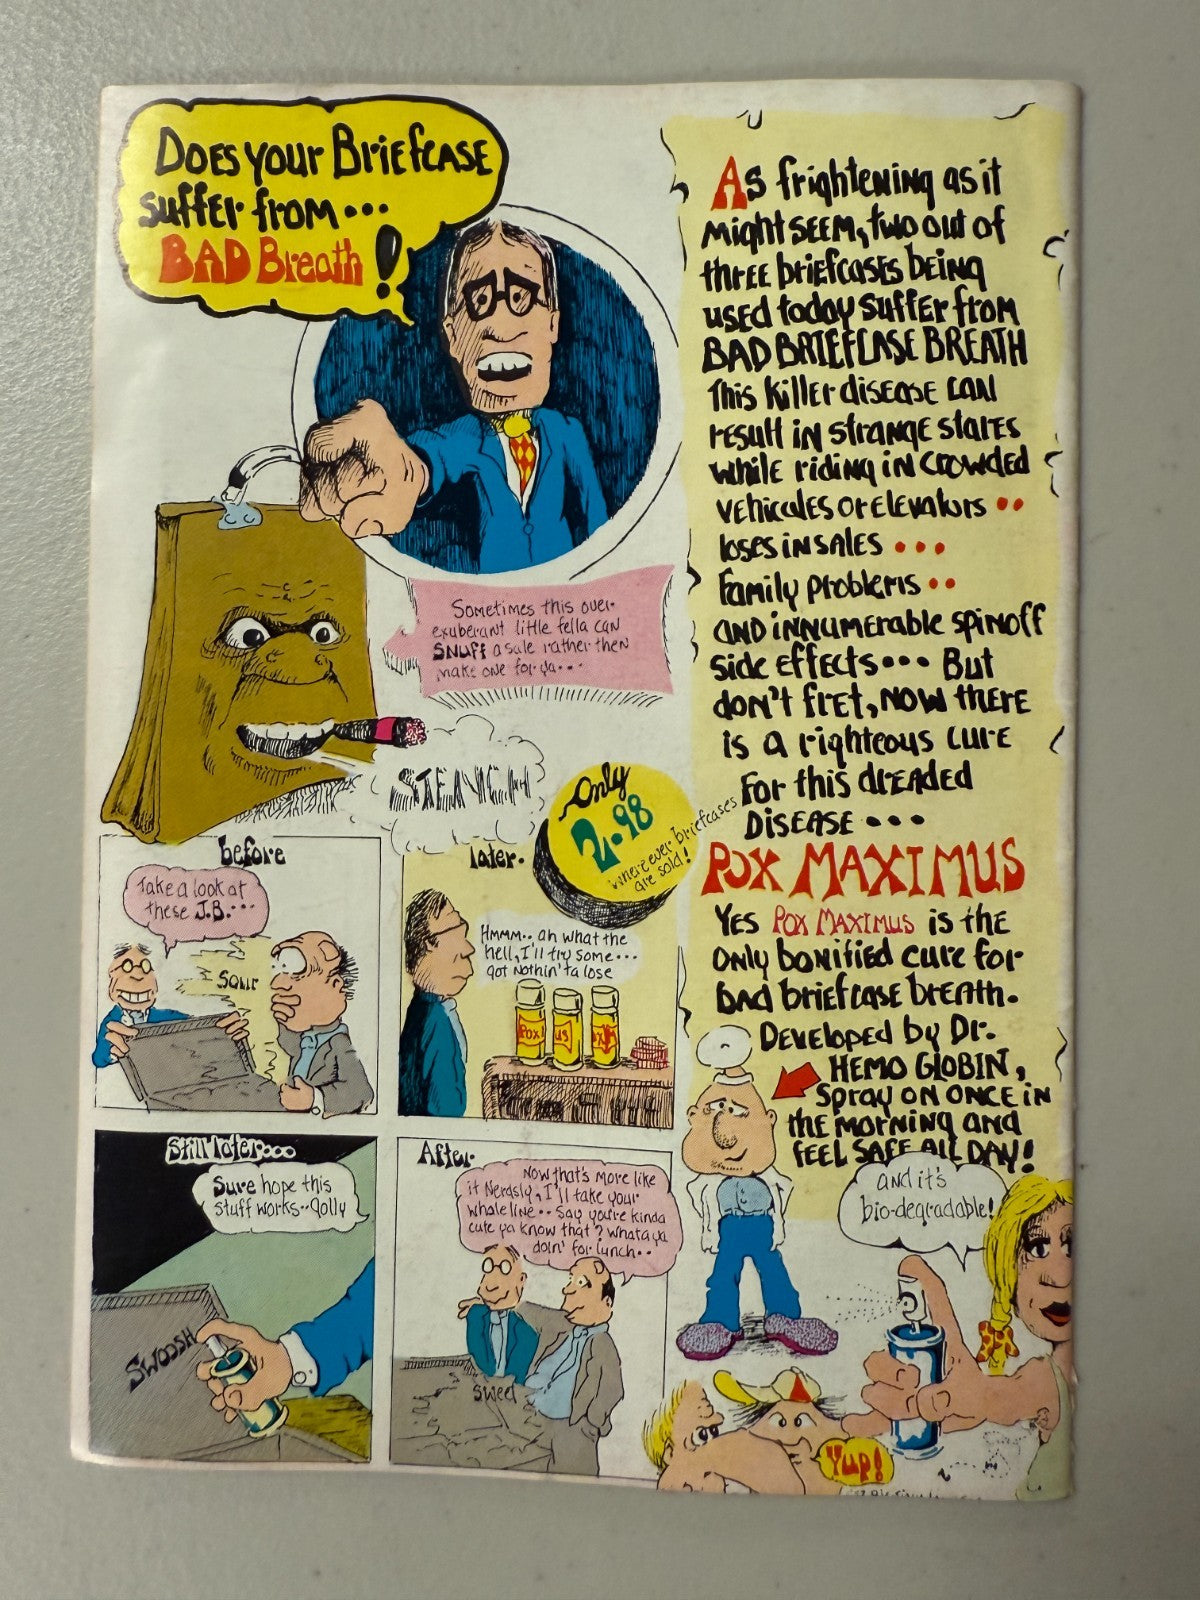 Does your Briefcase
suffer from...
BAD Breath!
Sometimes this over-
exuberant little fella can
SNUFF a sale rather then
make one for ya...
STENCH
Only
2.98
where ever briefcases
are sold!
before
Take a look at
these J.B....
Sour
later.
Hmmm.. ah what the
hell, I'll try some...
got nothin' ta lose
Pox!
us
Still later...
Sure hope this
stuff works..golly
SWOOSH
After.
Now that's more like
it Nerdsly, I'll take your
whale line.. say you're kinda
cute ya know that? Whata ya
doin' for lunch..
sweet
As frightening as it
might seem, two out of
three briefcases being
used today suffer from
BAD BRIEFCASE BREATH
This killer disease can
result in strange stares
while riding in crowded
vehicules or elevators ..
loses in sales ...
family problems ..
and innumerable spinoff
side effects... But
don't fret, now there
is a righteous cure
for this dreaded
disease ...
POX MAXIMUS
Yes Pox Maximus is the
only bonified cure for
bad briefcase breath.
Developed by Dr.
HEMO GLOBIN,
Spray on once in
the morning and
feel safe all day!
and it's
bio-degradable!
Yup!